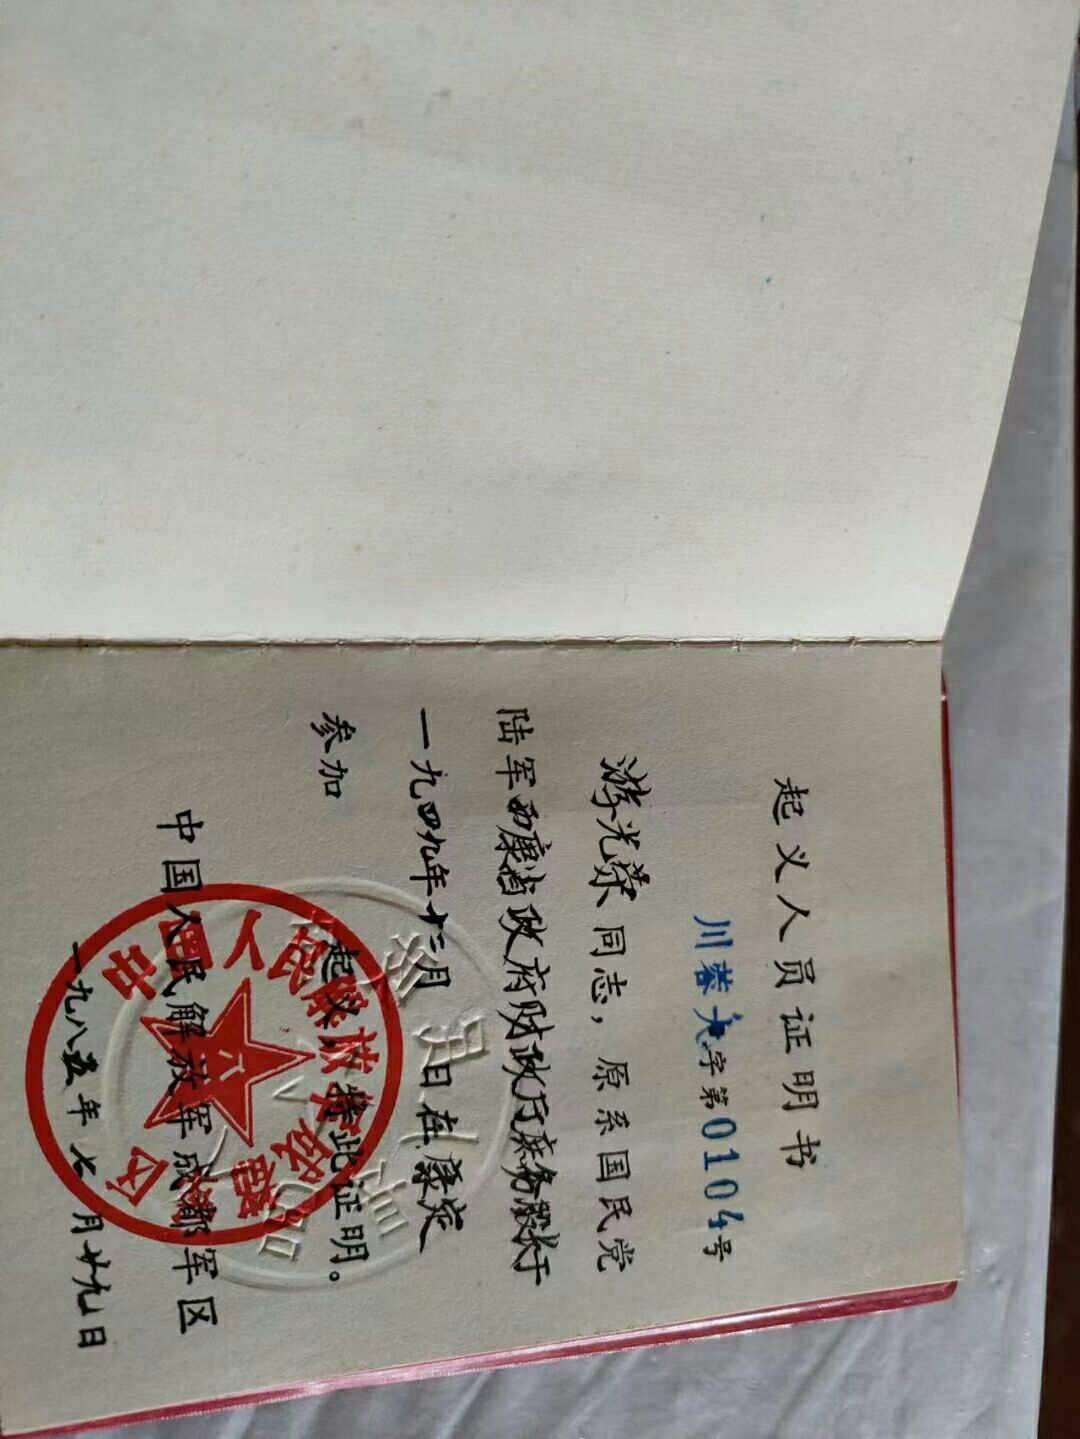 起义人员证明书
川蓉 字第0104号
游光荣同志，原系国民党
陆军西康省政府财政厅庶务股长于
一九四九年十二月 日在康定
参加 起义，特此证明。
中国人民解放军成都军区
一九八五年七月廿九日